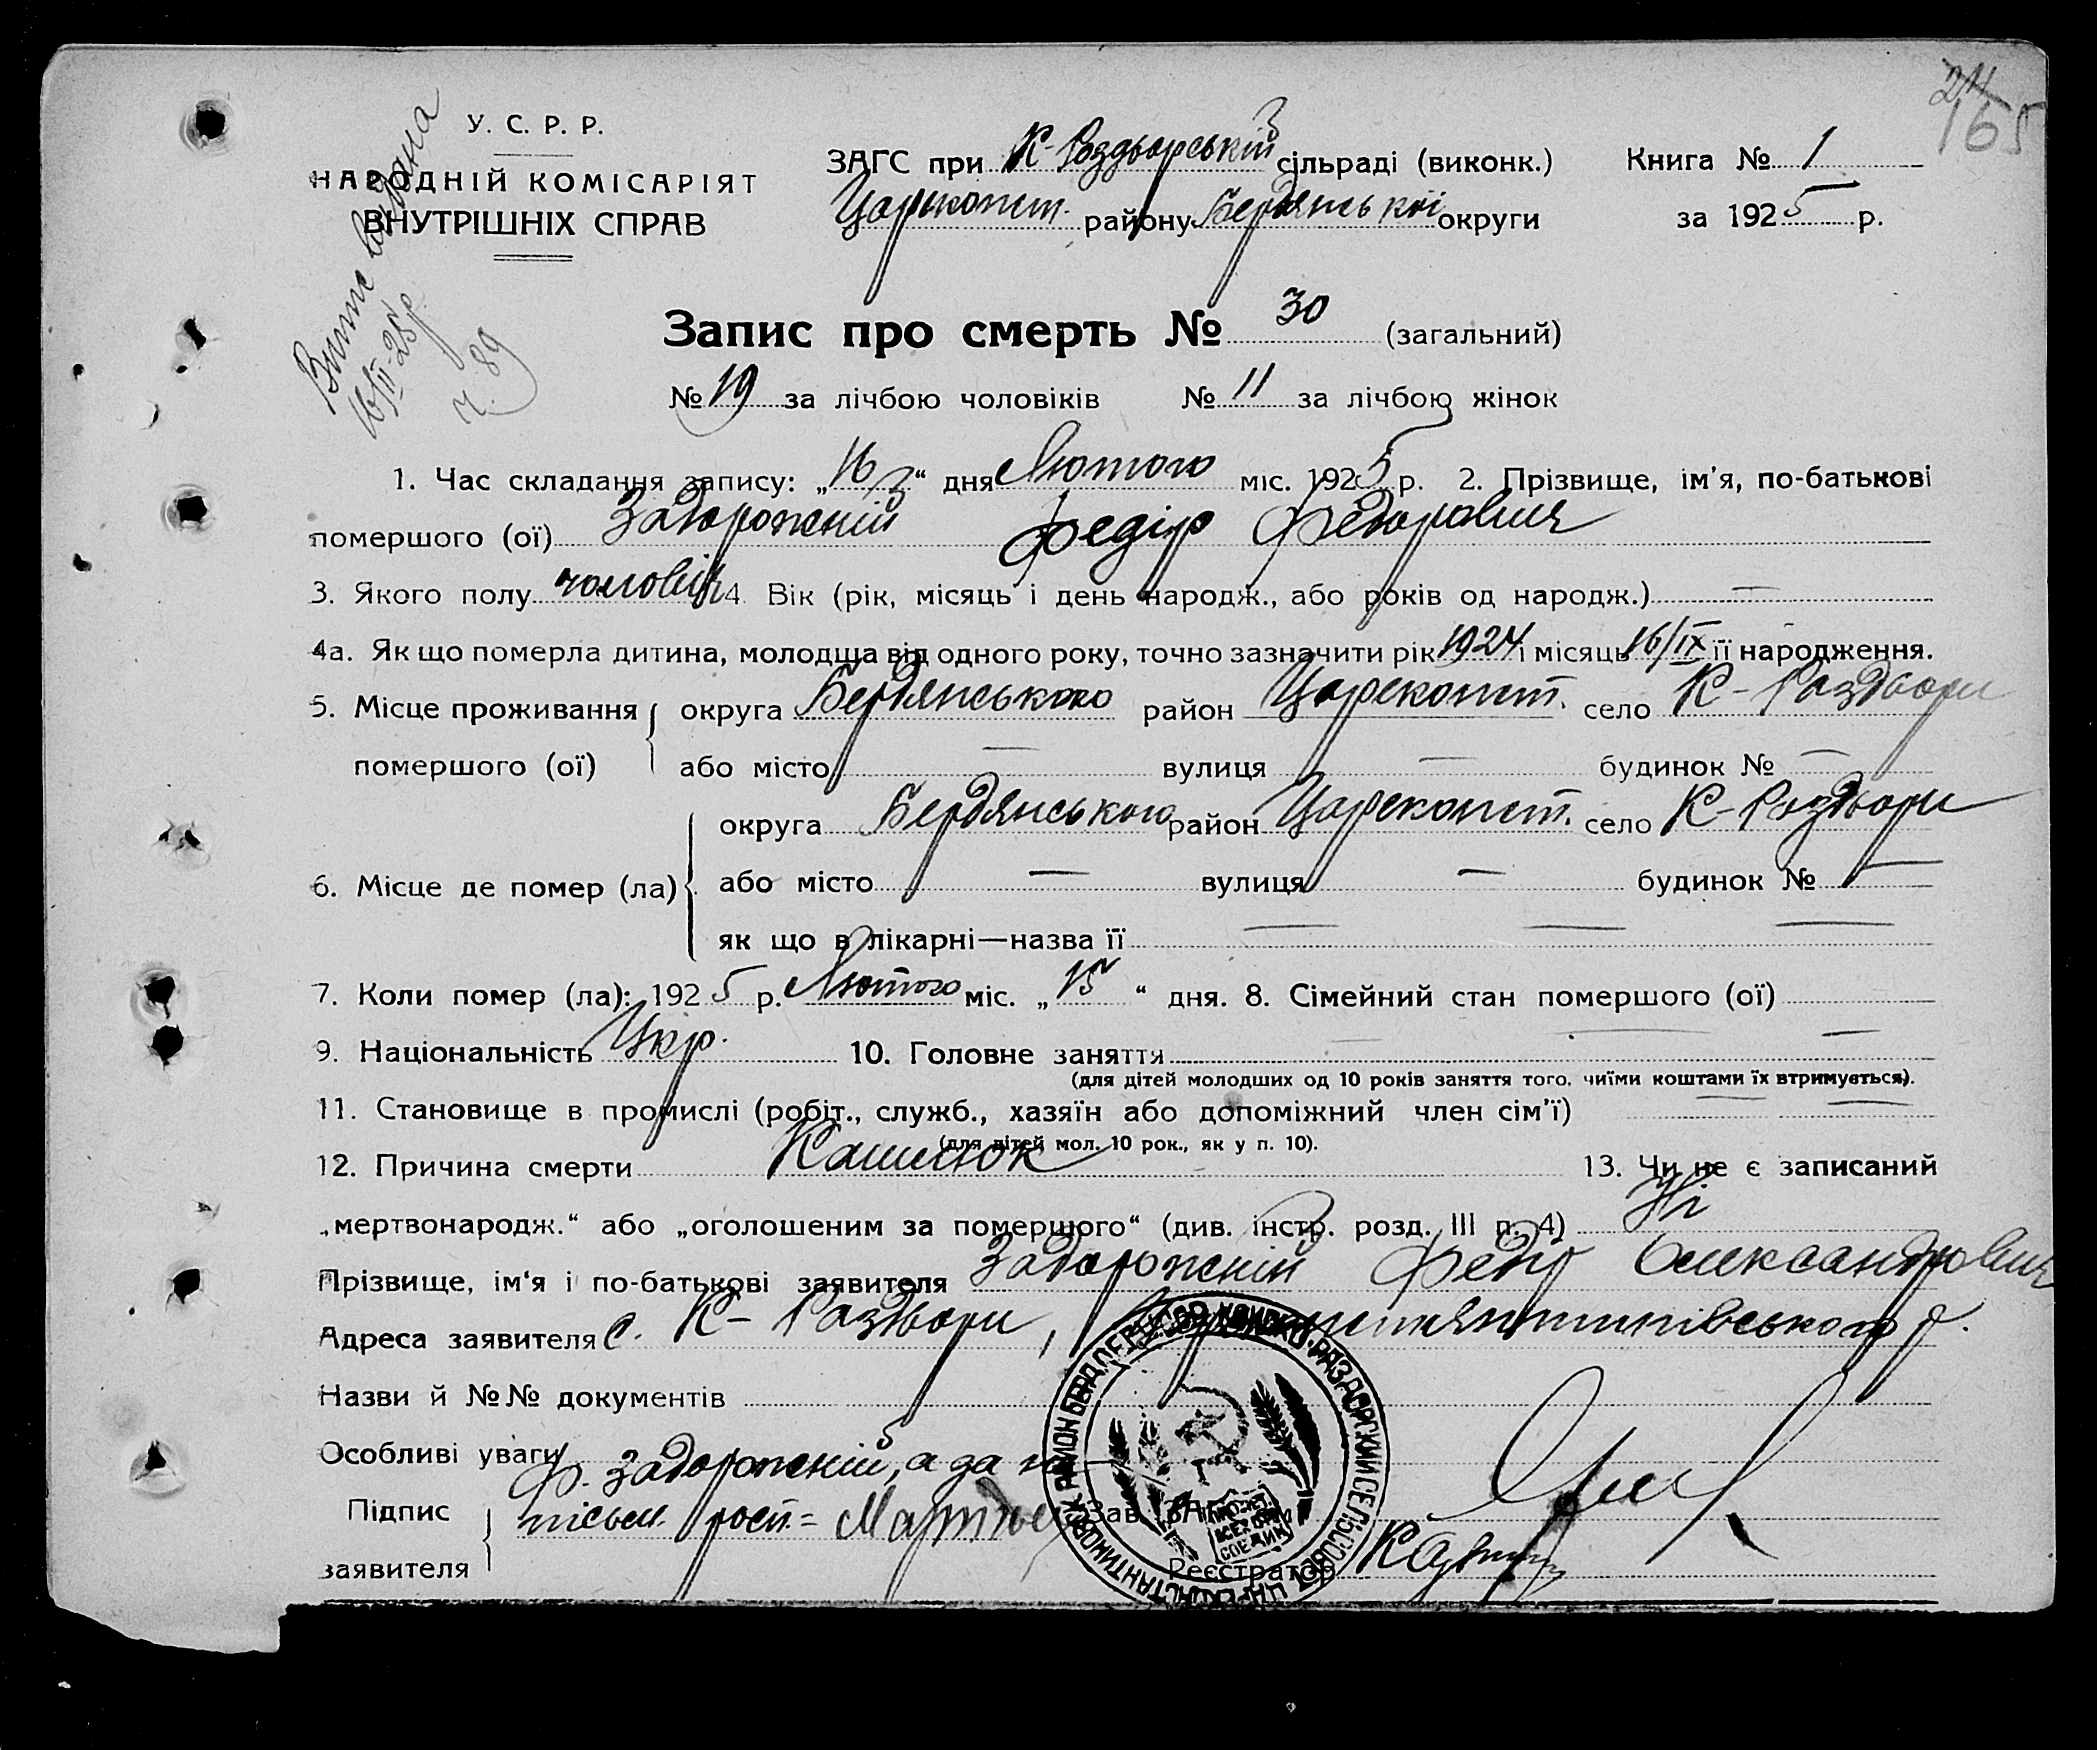 24
165
У. С. Р. Р.
НАРОДНІЙ КОМІСАРІЯТ
ВНУТРІШНІХ СПРАВ
Випис видана
16/II-25р.
ч. 89
ЗАГС при К-Роздорській сільраді (виконк.) Книга № 1
Царекопст. району Бердянської округи за 1925 р.
Запис про смерть № 30 (загальний)
№ 19 за лічбою чоловіків № 11 за лічбою жінок
1. Час складання запису: „16“ дня Лютого міс. 1925 р. 2. Прізвище, ім'я, по-батькові
помершого (ої) Задорожній Федір Федорович
3. Якого полу чоловік 4. Вік (рік, місяць і день народж., або років од народж.) —
4а. Як що померла дитина, молодша від одного року, точно зазначити рік 1924 і місяць 16/IX її народження.
5. Місце проживання округа Бердянського район Царекопст. село К-Раздори
помершого (ої) або місто — вулиця — будинок № —
округа Бердянського район Царекопст. село К-Раздори
6. Місце де помер (ла) або місто — вулиця — будинок № —
як що в лікарні—назва її — — —
7. Коли помер (ла): 1925 р. Лютого міс. „15“ дня. 8. Сімейний стан помершого (ої)
9. Національність Укр. 10. Головне заняття — — —
(для дітей молодших од 10 років заняття того, чиїми коштами їх втримується).
11. Становище в промислі (робіт., служб., хазяїн або допоміжний член сім'ї) — —
(для дітей мол. 10 рок., як у п. 10).
12. Причина смерти Кашлюк 13. Чи не є записаний
„мертвонародж.“ або „оголошеним за померщого“ (див. інстр. розд. III п. 4) Ні
Прізвище, ім'я і по-батькові заявителя Задорожній Федір Олександрович
Адреса заявителя с. К-Раздори,
Назви й №№ документів
Особливі уваги
Підпис Ф. Задорожній, а за
заявителя письм. росп. =
Зав. ЗАГС
Реєстратор